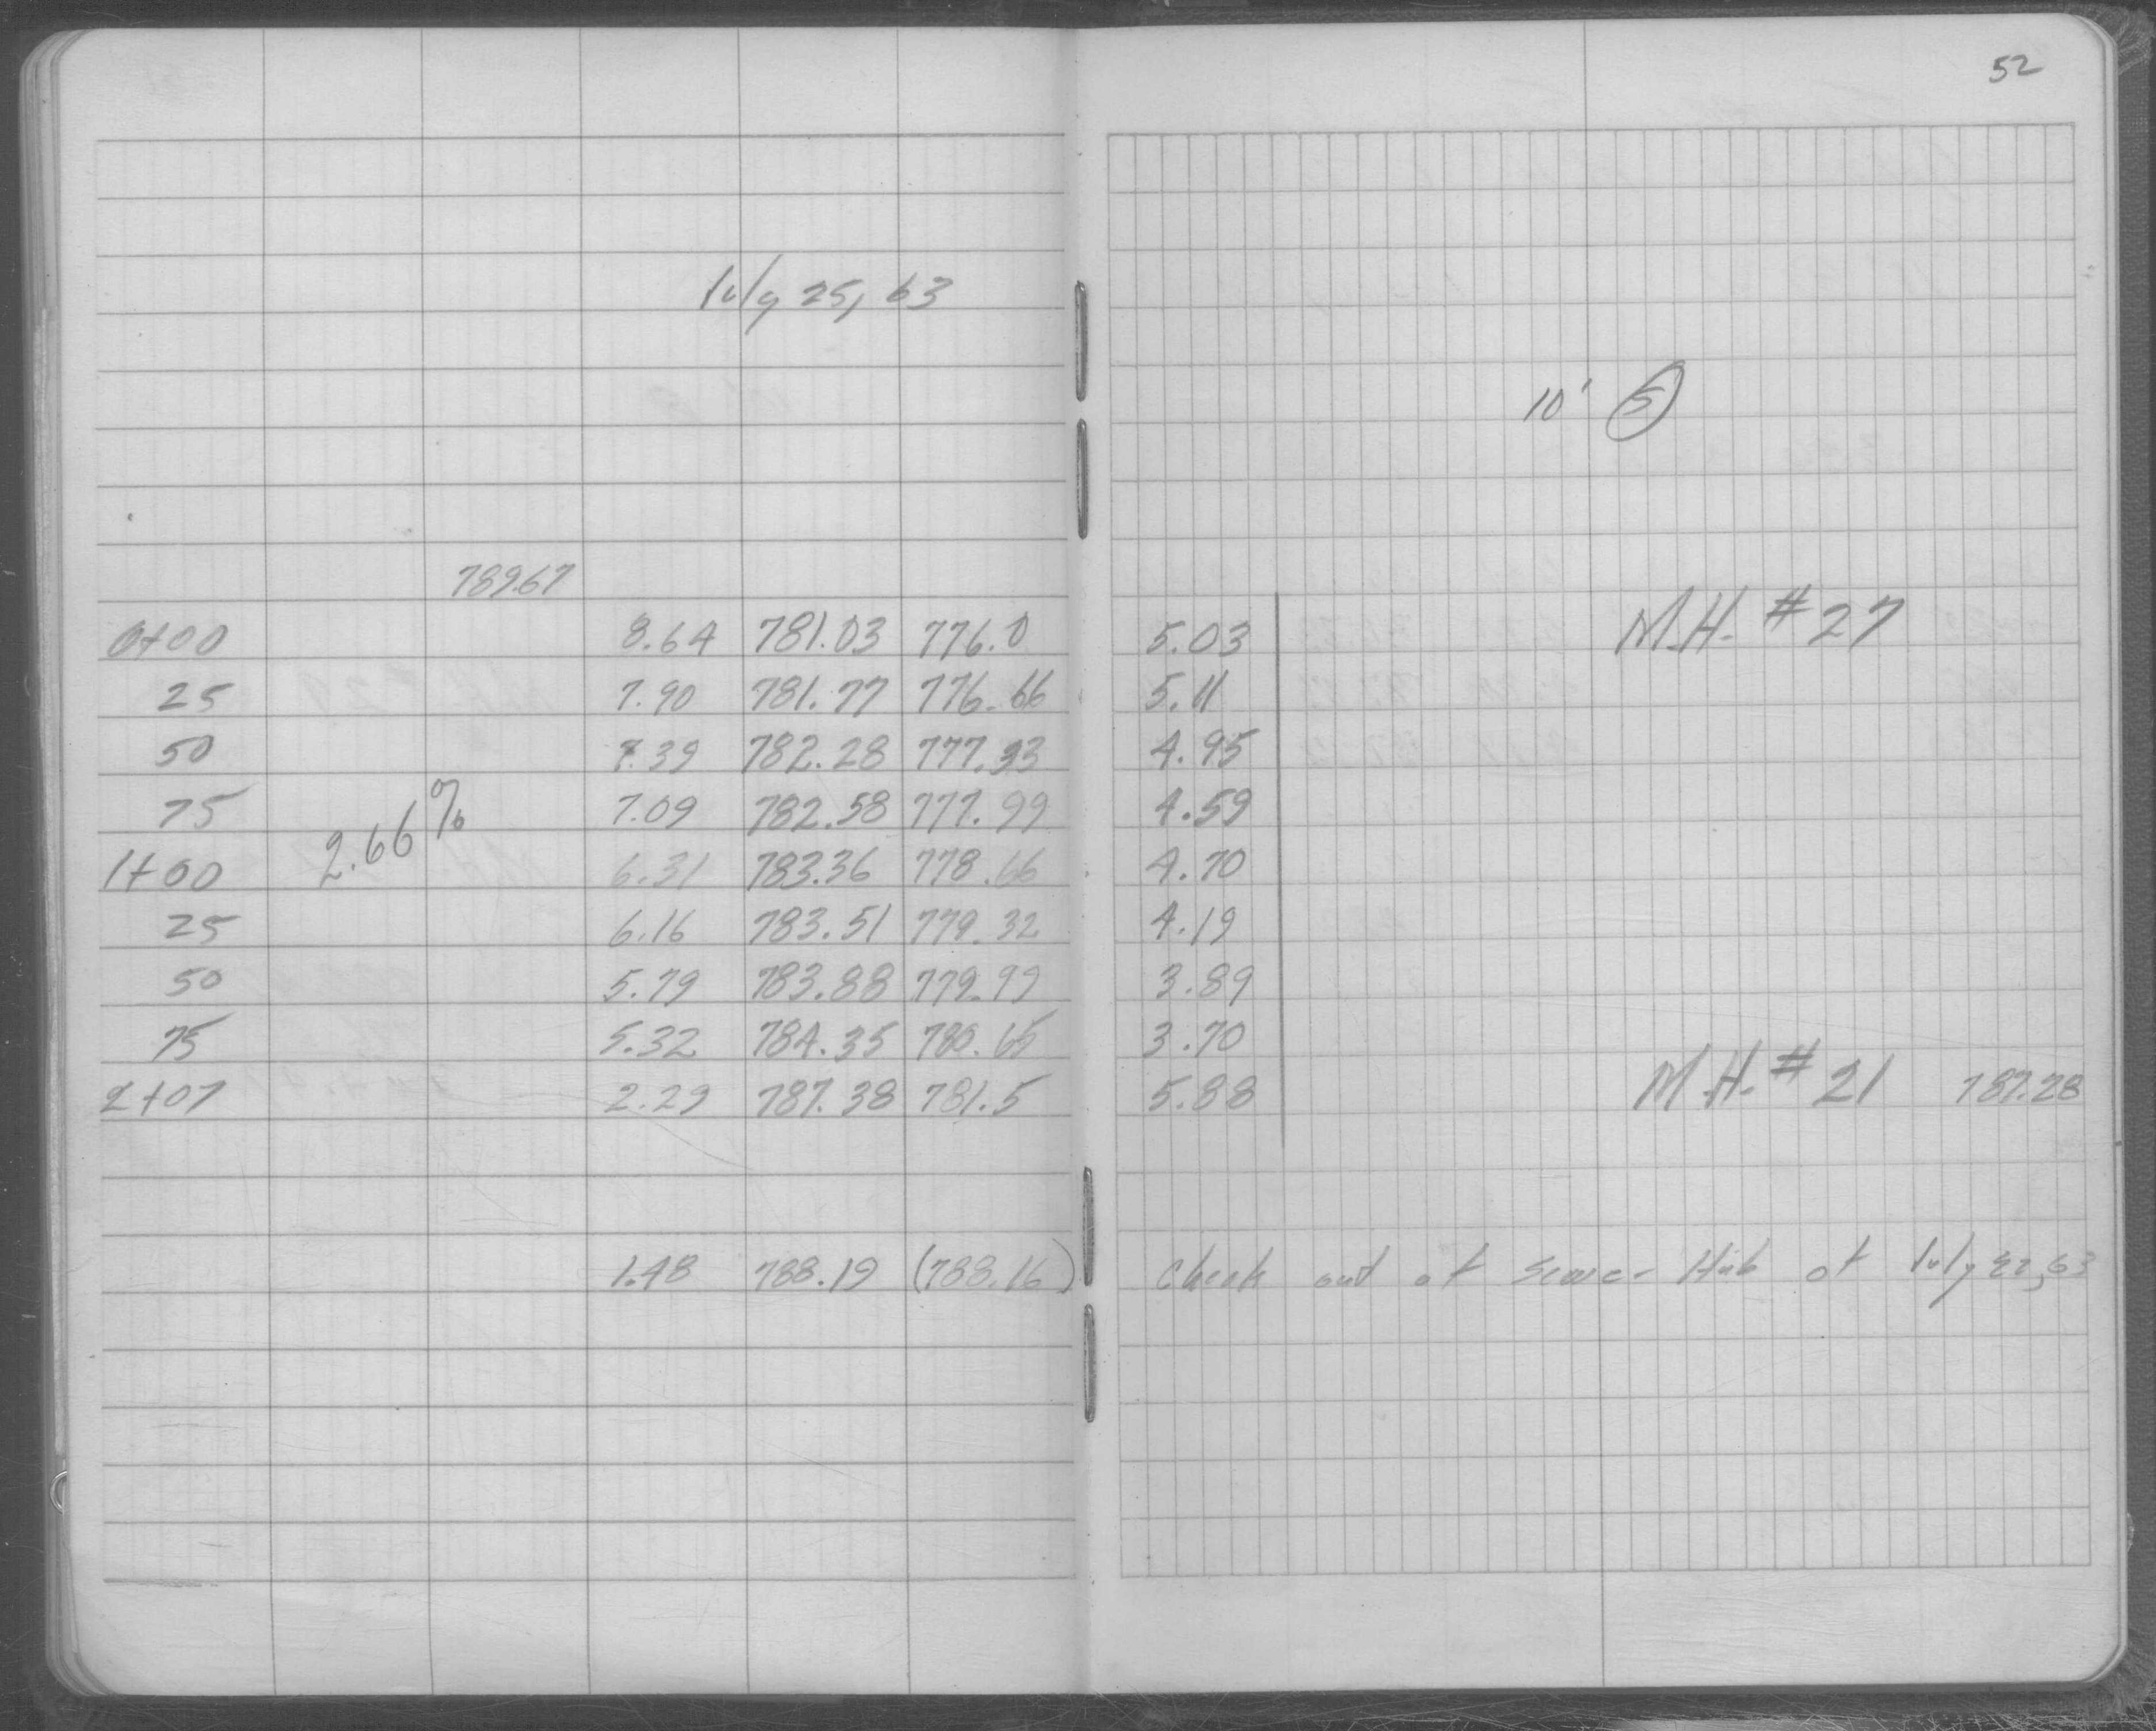 52
July 25, 63
10' S
789.67
0+00 8.64 781.03 776.0 5.03 M.H. #27
25 7.90 781.77 776.66 5.11
50 7.39 782.28 777.33 4.95
75 7.09 782.58 777.99 4.59
2.66%
1+00 6.31 783.36 778.66 4.70
25 6.16 783.51 779.32 4.19
50 5.79 783.88 779.99 3.89
75 5.32 784.35 780.65 3.70
2+07 2.29 787.38 781.5 5.88 M.H. #21 787.28
1.48 788.19 (788.16) Check out at Sewer Hub of July 22, 63